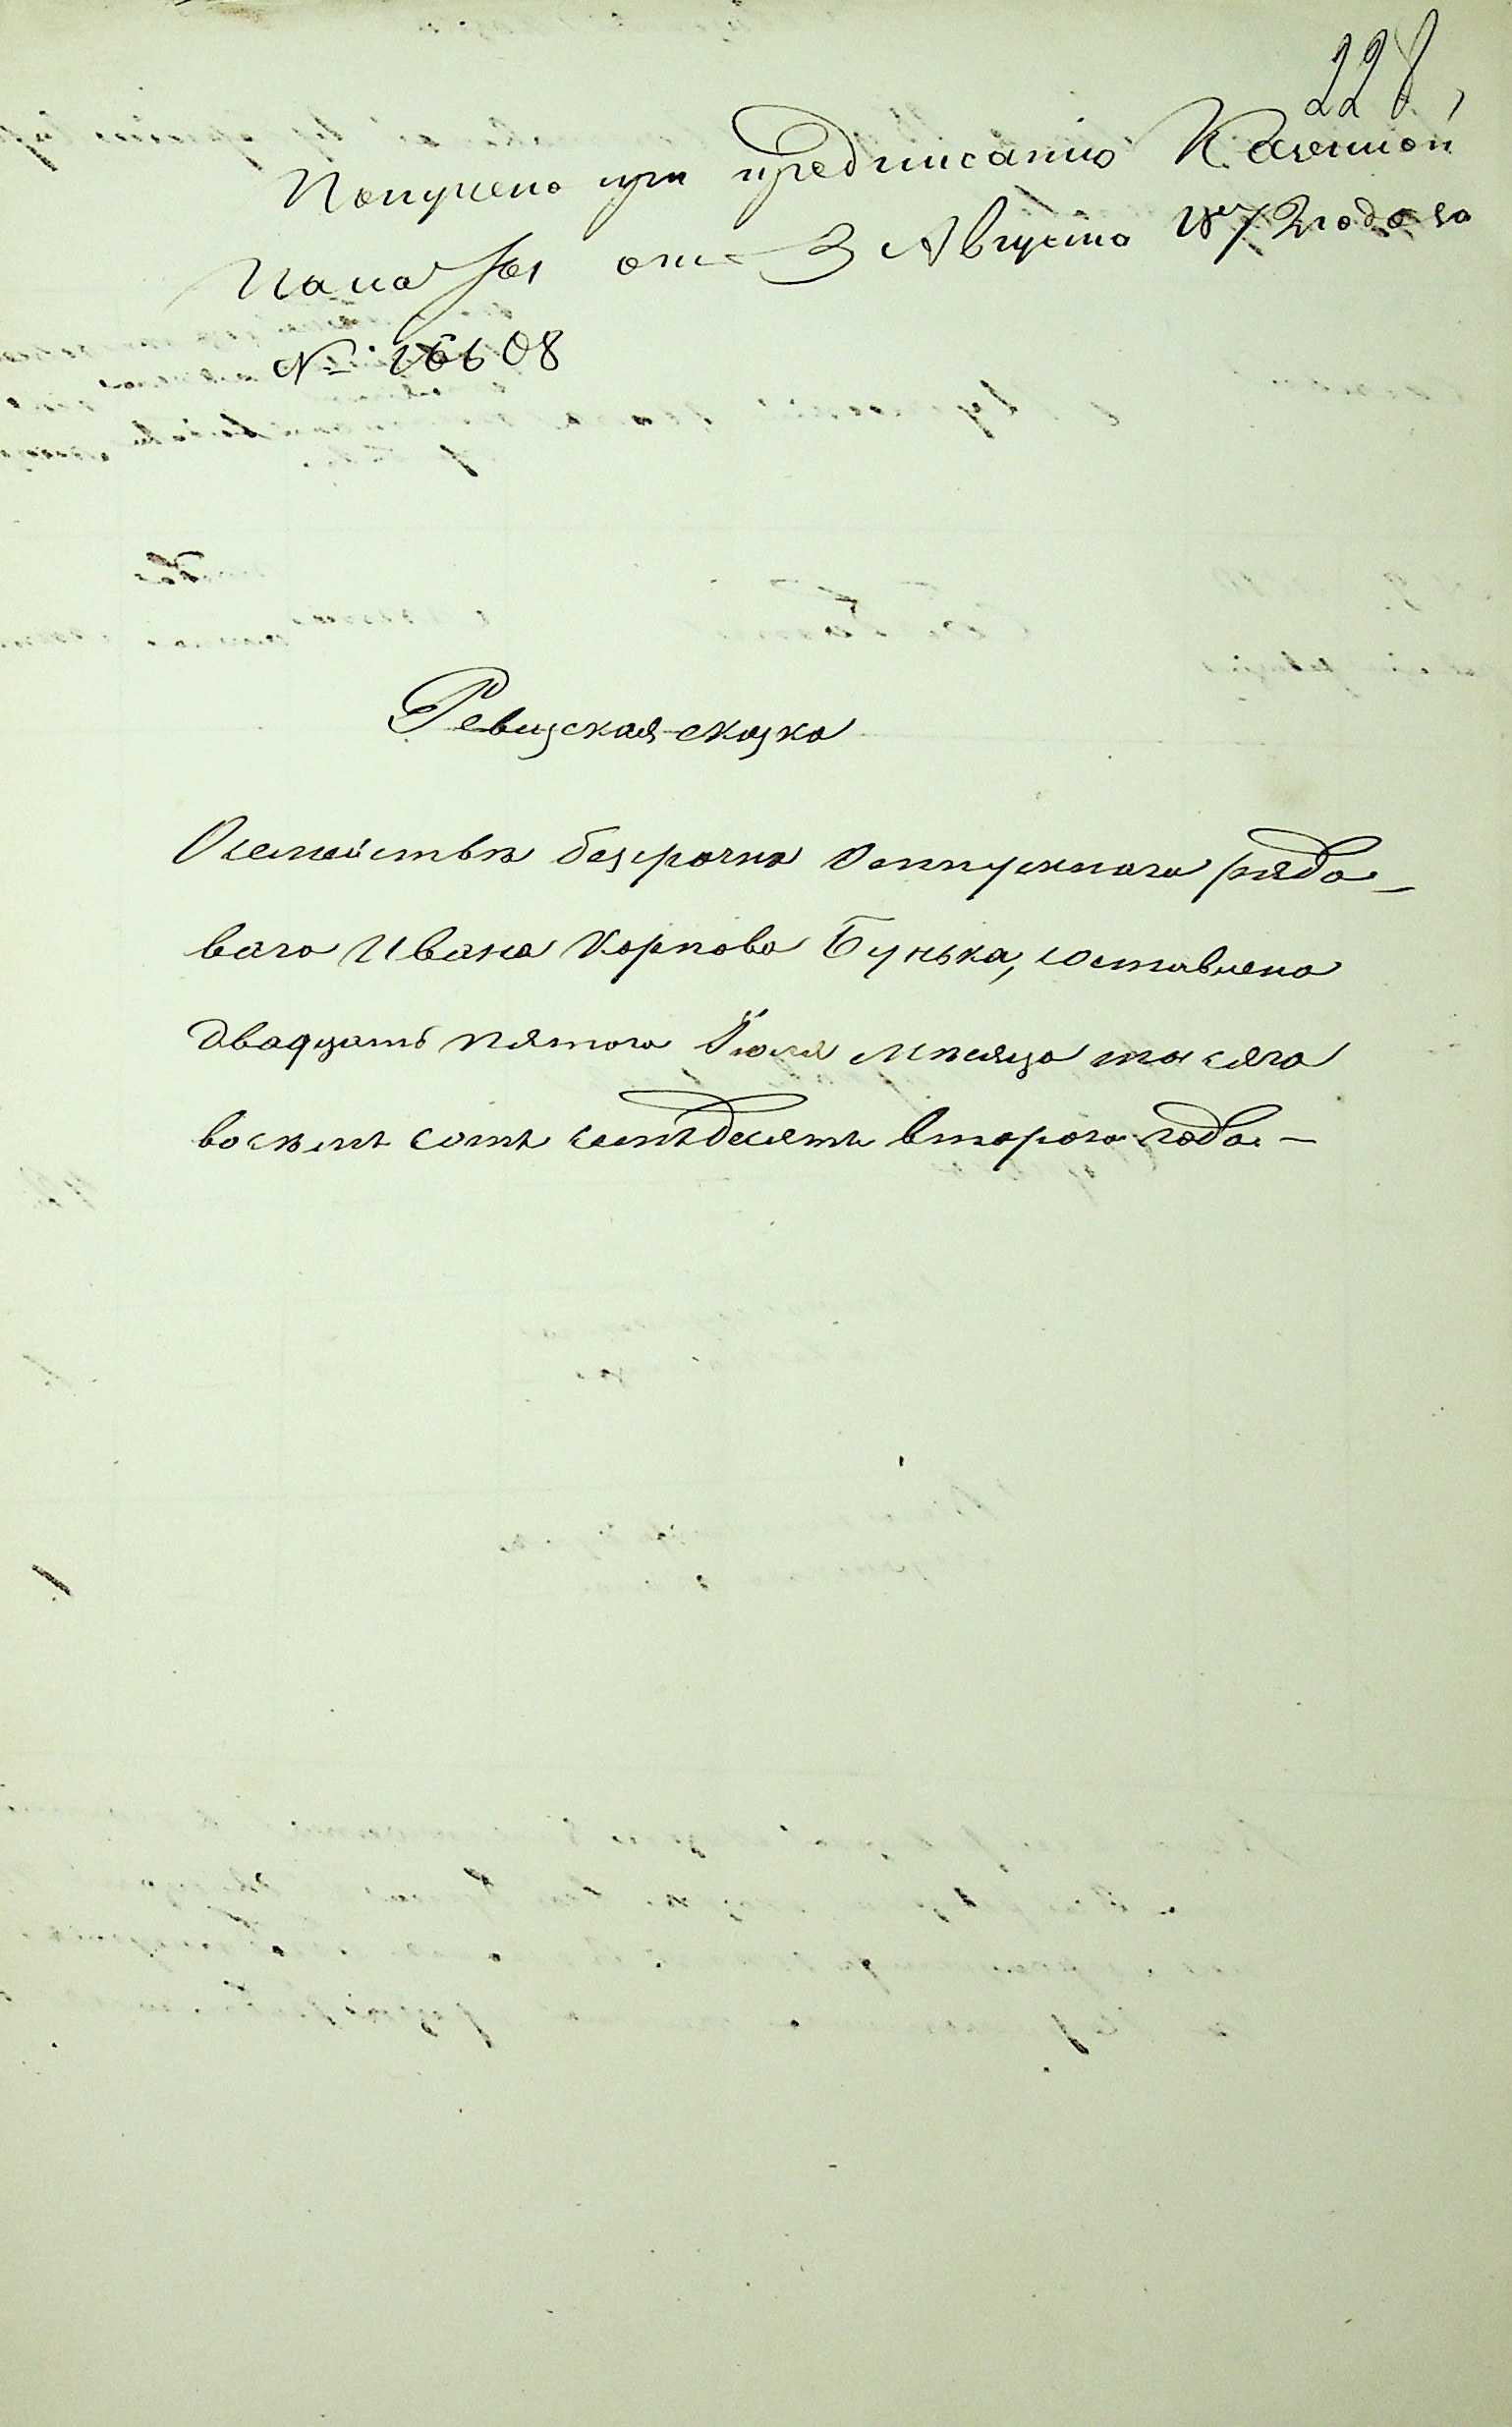 228,
Получено при предписанію Казенной
Палаты отъ 3 Августа 1872 года за
№ 16608
Ревизская сказка
О семействѣ безсрочно отпускнаго рядо-
ваго Ивана Карпова Бунька, составлена
двадцать пятого Іюля мѣсяца тысяча
восемь сотъ семьдесятъ второго года. —